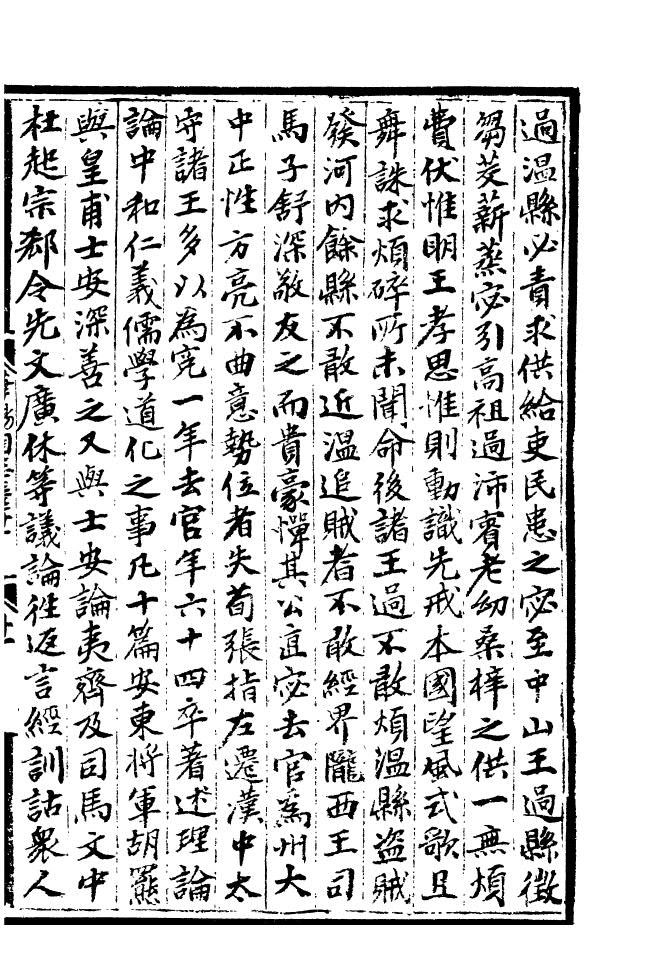 過溫縣必責求供給吏民患之宓至中山王過縣徵
芻茭薪蒸宓引高祖過沛賓老幼桑梓之供一無煩
費伏惟明王孝思惟則動識先戒本國望風式歌且
舞誅求煩碎所未聞命後諸王過不敢煩溫縣盜賊
發河內餘縣不敢近溫追賊者不敢經界隴西王司
馬子舒深敬友之而貴豪憚其公直宓去官為州大
中正性方亮不曲意勢位者失荀張指左遷漢中太
守諸王多以為寃一年去官年六十四卒著述理論
論中和仁義儒學道化之事凡十篇安東將軍胡羆
與皇甫士安深善之又與士安論夷齊及司馬文中
杜超宗郄令先文廣休等議論徃返言經訓詁衆人